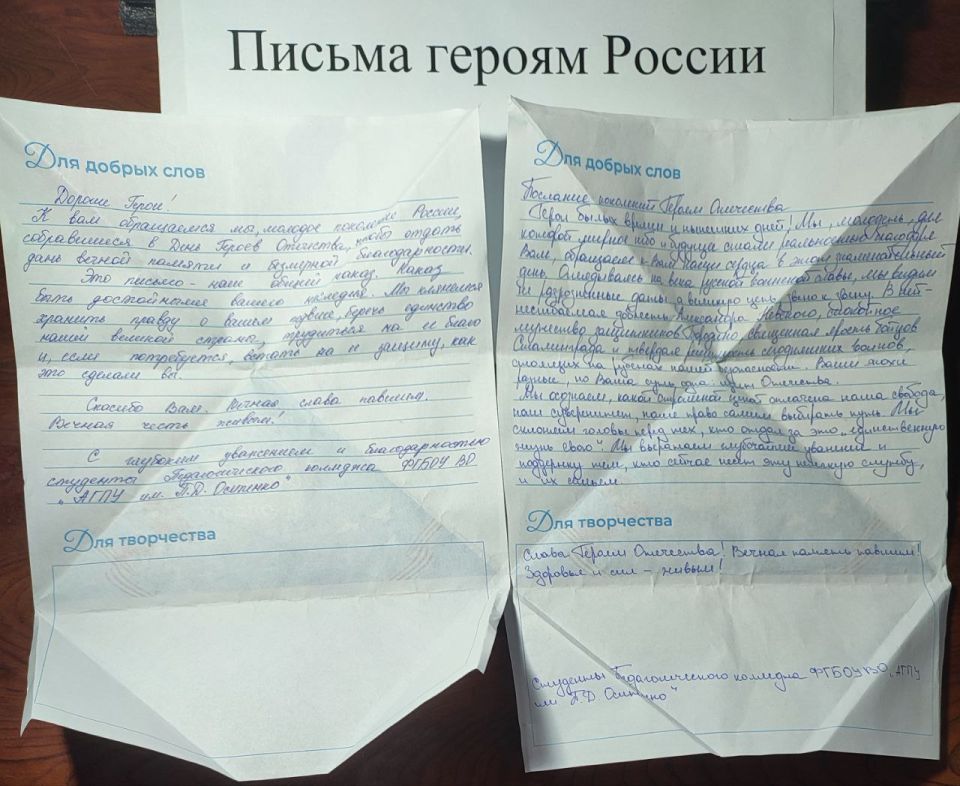 Письма героям России
Для добрых слов
Дорогие Герои!
К вам обращаемся мы, молодое поколение России,
собравшиеся в День Героев Отечества, чтобы отдать
дань вечной памяти и безмерной благодарности.
Это письмо - наш общий наказ. Наказ
быть достойными вашего наследия. Мы клянемся
хранить правду о вашем подвиге, беречь единство
нашей великой страны, трудиться на ее благо
и, если потребуется, встать на ее защиту, как
это сделали вы.
Спасибо Вам. Вечная слава павшим.
Вечная честь живым!
С глубоким уважением и благодарностью
студенты Педагогического колледжа ФГБОУ ВО
"АГПУ им. П.Д. Осипенко"
Для творчества
Для добрых слов
Послание поколений Героям Отечества
Герои былых времен и нынешних дней! Мы, молодежь, для
которой мирное небо и будущее стали реальностью благодаря
Вам, обращаем к Вам наши сердца в этот знаменательный
день. Оглядываясь на века русской воинской славы, мы видим
не разрозненные даты, а великую цепь, звено к звену. В ней -
несгибаемая доблесть Александра Невского, стойкое
мужество защитников Бородино, священная ярость бойцов
Сталинграда и твердая решимость сегодняшних воинов,
стоящих на рубежах нашей безопасности. Ваши эпохи
разные, но Ваша суть одна: щит Отечества.
Мы осознаем, какой огромной ценой оплачена наша свобода,
наш суверенитет, наше право самим выбирать путь. Мы
склоняем головы перед тех, кто отдал за это "единственную
жизнь свою". Мы выражаем глубочайшее уважение и
поддержку тем, кто сейчас несет эту тяжкую службу,
и их семьям.
Для творчества
Слава Героям Отечества! Вечная память павшим!
Здоровья и сил - живым!
Студенты Педагогического колледжа ФГБОУ ВО "АГПУ
им П.Д Осипенко"